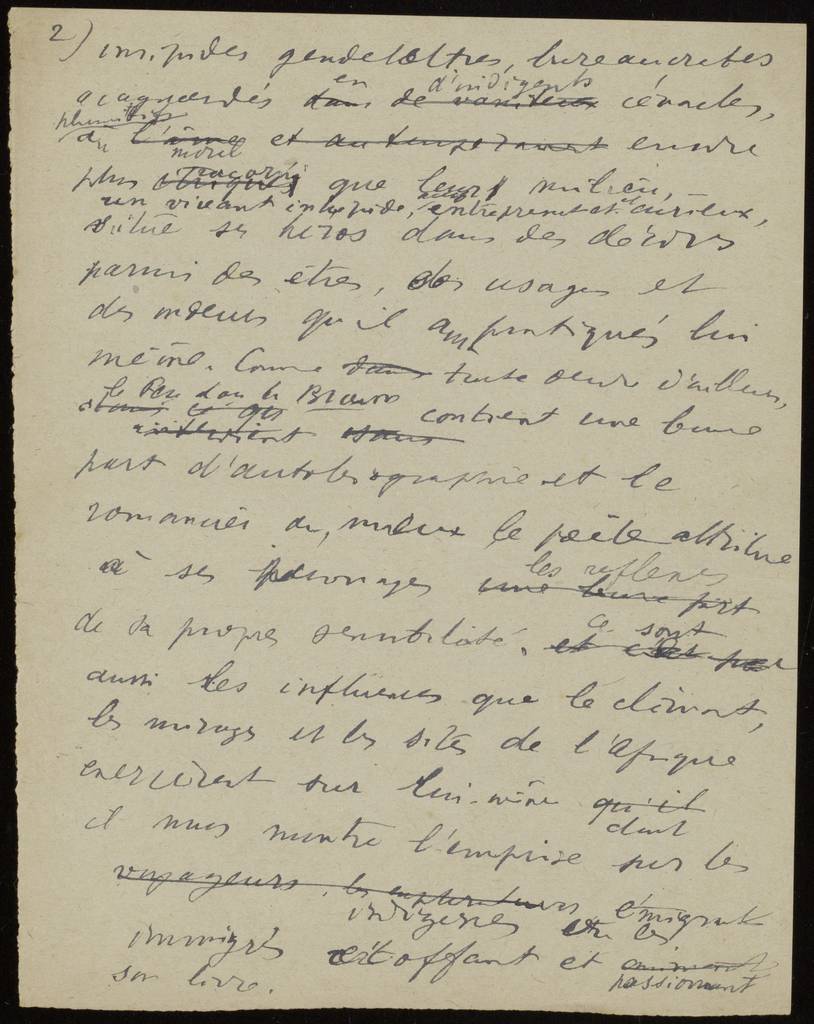 2) insipides gendelettres, bureaucrates
acagnardés en d'indigents
dans de vaniteux cénacles,
plumitifs
du l'âme et au tempérament encore
moral
plus étriqués que leurs milieu,
un vivant intrépide, entreprenant et curieux,
situe ses héros dans des décors
parmi des êtres, des usages et
des mœurs qu'il a pratiqués lui
même. Comme dans toute œuvre d'ailleurs,
le Père dans la Brousse
dans ce qui contient une bonne
part d'autobiographie et le
romancier ou, mieux le poète attribue
les reflexes
à ses personnages une bonne part
ce sont
de sa propre sensibilité. et c'est par
aussi les influences que le climat,
les mirages et les sites de l'Afrique
exercèrent sur lui-même qu'il
dont
il nous montre l'emprise sur les
voyageurs, les explorateurs émigrants
indigènes et les
immigrés étoffant et animant
passionnant
son livre.